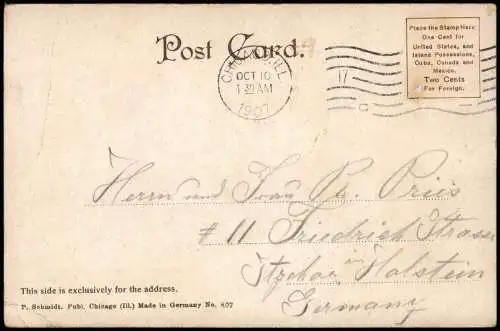 Post Card.
CHICAGO, ILL.
OCT 10
1 30 AM
1907
17
C
Place the Stamp Here
One Cent for
United States, and
Island Possessions,
Cuba, Canada and
Mexico.
Two Cents
For Foreign.
Herrn und Frau Pr. Pries
# 11 Friedrich Strasse
Itzehoe in Holstein
Germany
This side is exclusively for the address.
P. Schmidt. Publ. Chicago (Ill.) Made in Germany No. 807